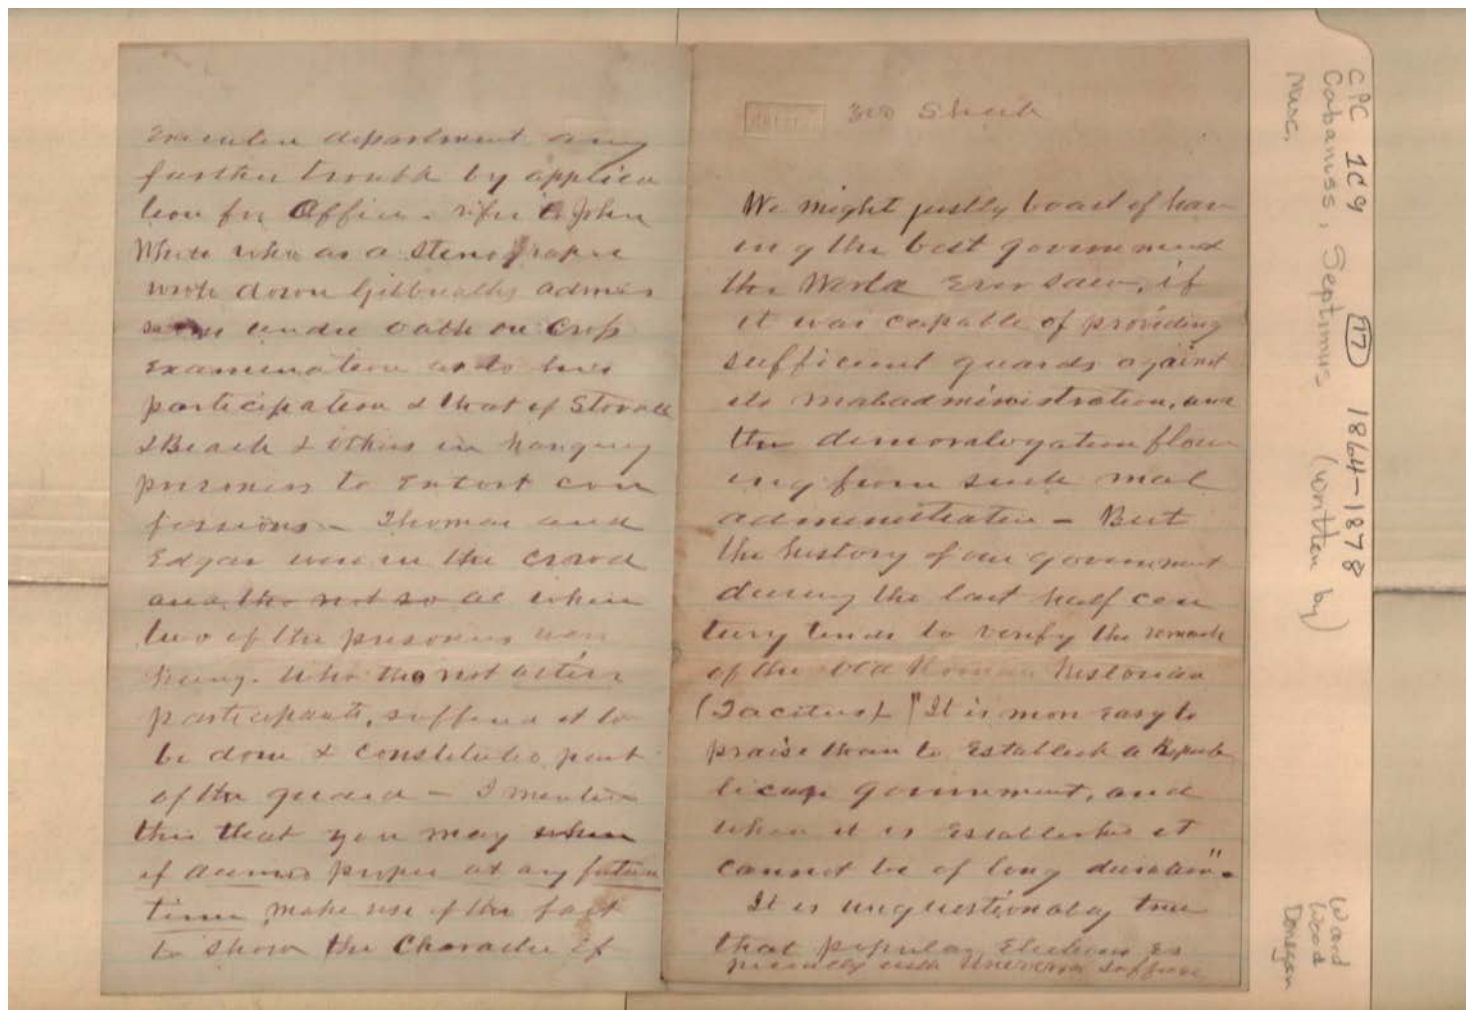 Executive department any
further trouble by applica
tion for office. refer to John
White who as a stenographer
wrote down Gilbreath's admis
sions under oath on cross
examination as to his
participation & that of Stovall
& Beach & others in hanging
prisoners to extort con
fessions - Thomas and
Edgar were in the crowd
and tho not so at when
two of the prisoners were
hung. Who tho not active
participants, suffered it to
be done & constituted part
of the guard - I mention
this that you may when
if deemed proper at any future
time make use of the fact
to show the character of
3rd Sheet
We might justly boast of hav
ing the best government
the World Ever saw, if
it was capable of providing
sufficient guards against
its maladministration, and
the demoralization flow
ing from such mal
administration - But
the history of our government
during the last half cen
tury tends to verify the remark
of the old Roman historian
(Tacitus) "It is more easy to
praise than to establish a Repub
lican government, and
when it is established it
cannot be of long duration".
It is unquestionably true
that popular Elections es
pecially with Universal suffrage
CPC 1C9 17 1864-1878
Cabaniss, Septimus (written by)
Misc.
Ward
Wood
Donegan